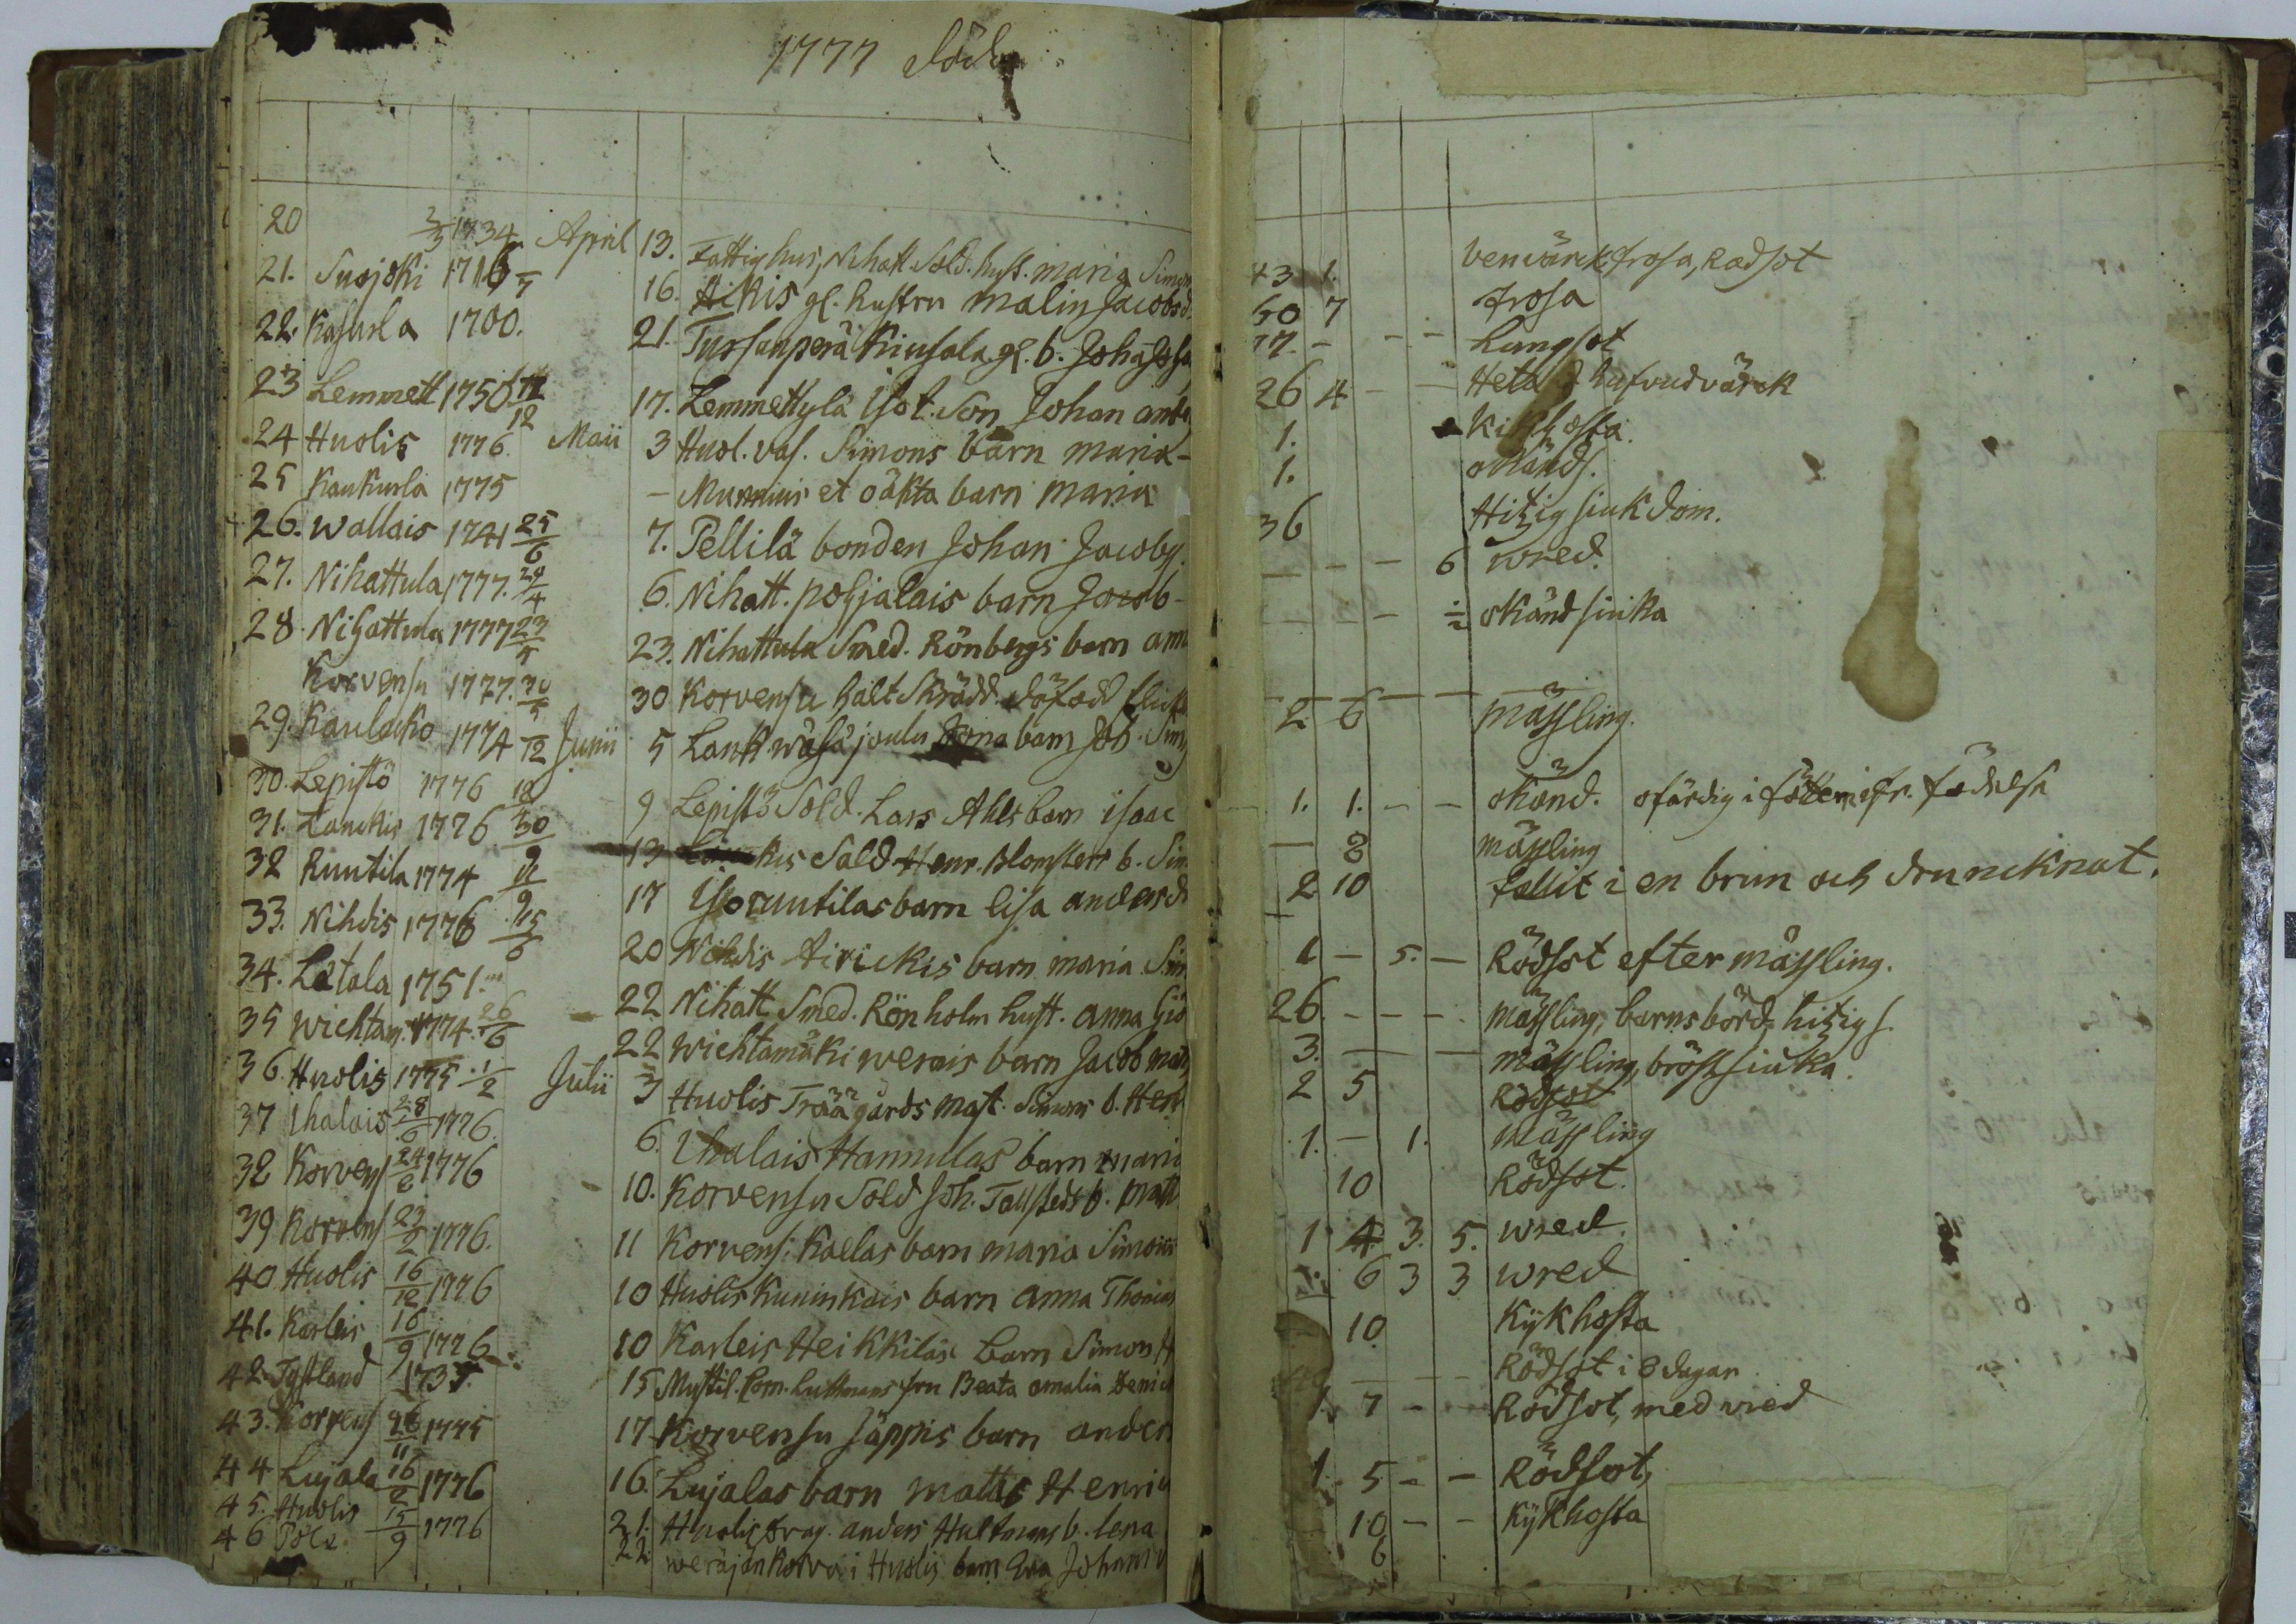 1777 döde
20 3/3 1734 April 13. Fattighus, Nihatt Sold. hust. maria Simon
21. Suojoki 1716 16. Aikis gl. hustru malin Jacobsd.
22. Kasurla 1700. 21. Tussanperä Kiusala gl. b. Joh
23 Lemmett 1750 12/12 17. Lemmettylä Isot. Son Johan and
24 Huolis 1776. Maii 3 Huol. vas. Simons barn maria -
25 Kaukurla 1775 - Munnius et oäkta barn maria
26. Wallais 1741 25/6 7. Pellilä bonden Johan Jacobs.
27. Nihattula 1777. 29/4 6. Nihatt. pohjalais barn Jacob -
28. Nihattula 1777 23/5 23. Nihattula Smed. Rönbergs barn ann
Korvensu 1777. 30/5 30 Korvensu halt Skrädd. döfød flick
29. Kaulacko 1774 12 Junii 5 Lank wäha joulu barn Joh. Sim
30. Lepistö 1776 12 9 Lepistö Sold. Lars Ahls barn isaac
31. Lanckis 1776 30/9 13 Sold Henr. Blomsters b. Sim
32 Ruutila 1774 9/9 17 Iso ruutilas barn lisa andersd
33. Nihdis 1776 15/6 20 Nihdis Airickis barn maria Sim
34. Lätola 1751 22 Nihatt Smed. Rönholm hust. anna
35 Wichtam. 1774. 26/6 22 Wichtamäki werais barn Jacob mat
36. Huolis 1775 1/2 Julii 3 Huolis Träägårds mast. Simons b. Hen
37 Uhalais 28/6 1776. 6. Uhalais Hannulas barn maria
38 Korvens 24/2 1776 10. Korvensu Sold Joh. Tallsteds b. Matt
39 Korvens 23/2 1776. 11 Korvens: Kallas barn maria Simons
40 Huolis 16/12 1776 10 Huolis Kuninkais barn anna Thomas
41. Karleis 16/9 1776 10 Karleis Heikkiläs barn Simon H
42. Tystland 1735. 15 Myttil. Com. Luthmans fru Beata amalia
43. Korvens 26/11 1775 17 Korvensu Jäppis barn anders
44 Lujala 16/2 1776 16. Lujalas barn matts Henric
45. Huolis 15/9 1776 21. Huolis drag. anders Hultmans b. lena
46 Pole 22 weräjänkorva i Huolis barn Eva Johans
43 1. benvärck frosa, Rödsot
60 7 frosa
77. - - - Lungsot
26 4 - - Heta hufvudvärck
1. Kikhosta.
1. okänds.
36 Hitzig siukdom.
- - - 6 wred.
- - - okänd siuka
2 6 mässling.
1. 1. - - okänd. ofärdig i fötter ifr. födelse
- 8 mässling
2 10 fallit i en brun och druncknat.
1 - 5. - Rödsot efter mässling.
26. - - - mässling, barnsbörd, hitzig s.
3. - - mässling, bröstsiuka.
2 5 Rödsot
1. - 1. mässling
10 Rödsot.
1 4. 3. 5. wred.
6 3 3 wred
10 Kykhosta
- - - Rödsot i 8 dagar
7 - - Rödsot, med wred
1. 5 - - Rödsot,
10 - - Kykhosta
6